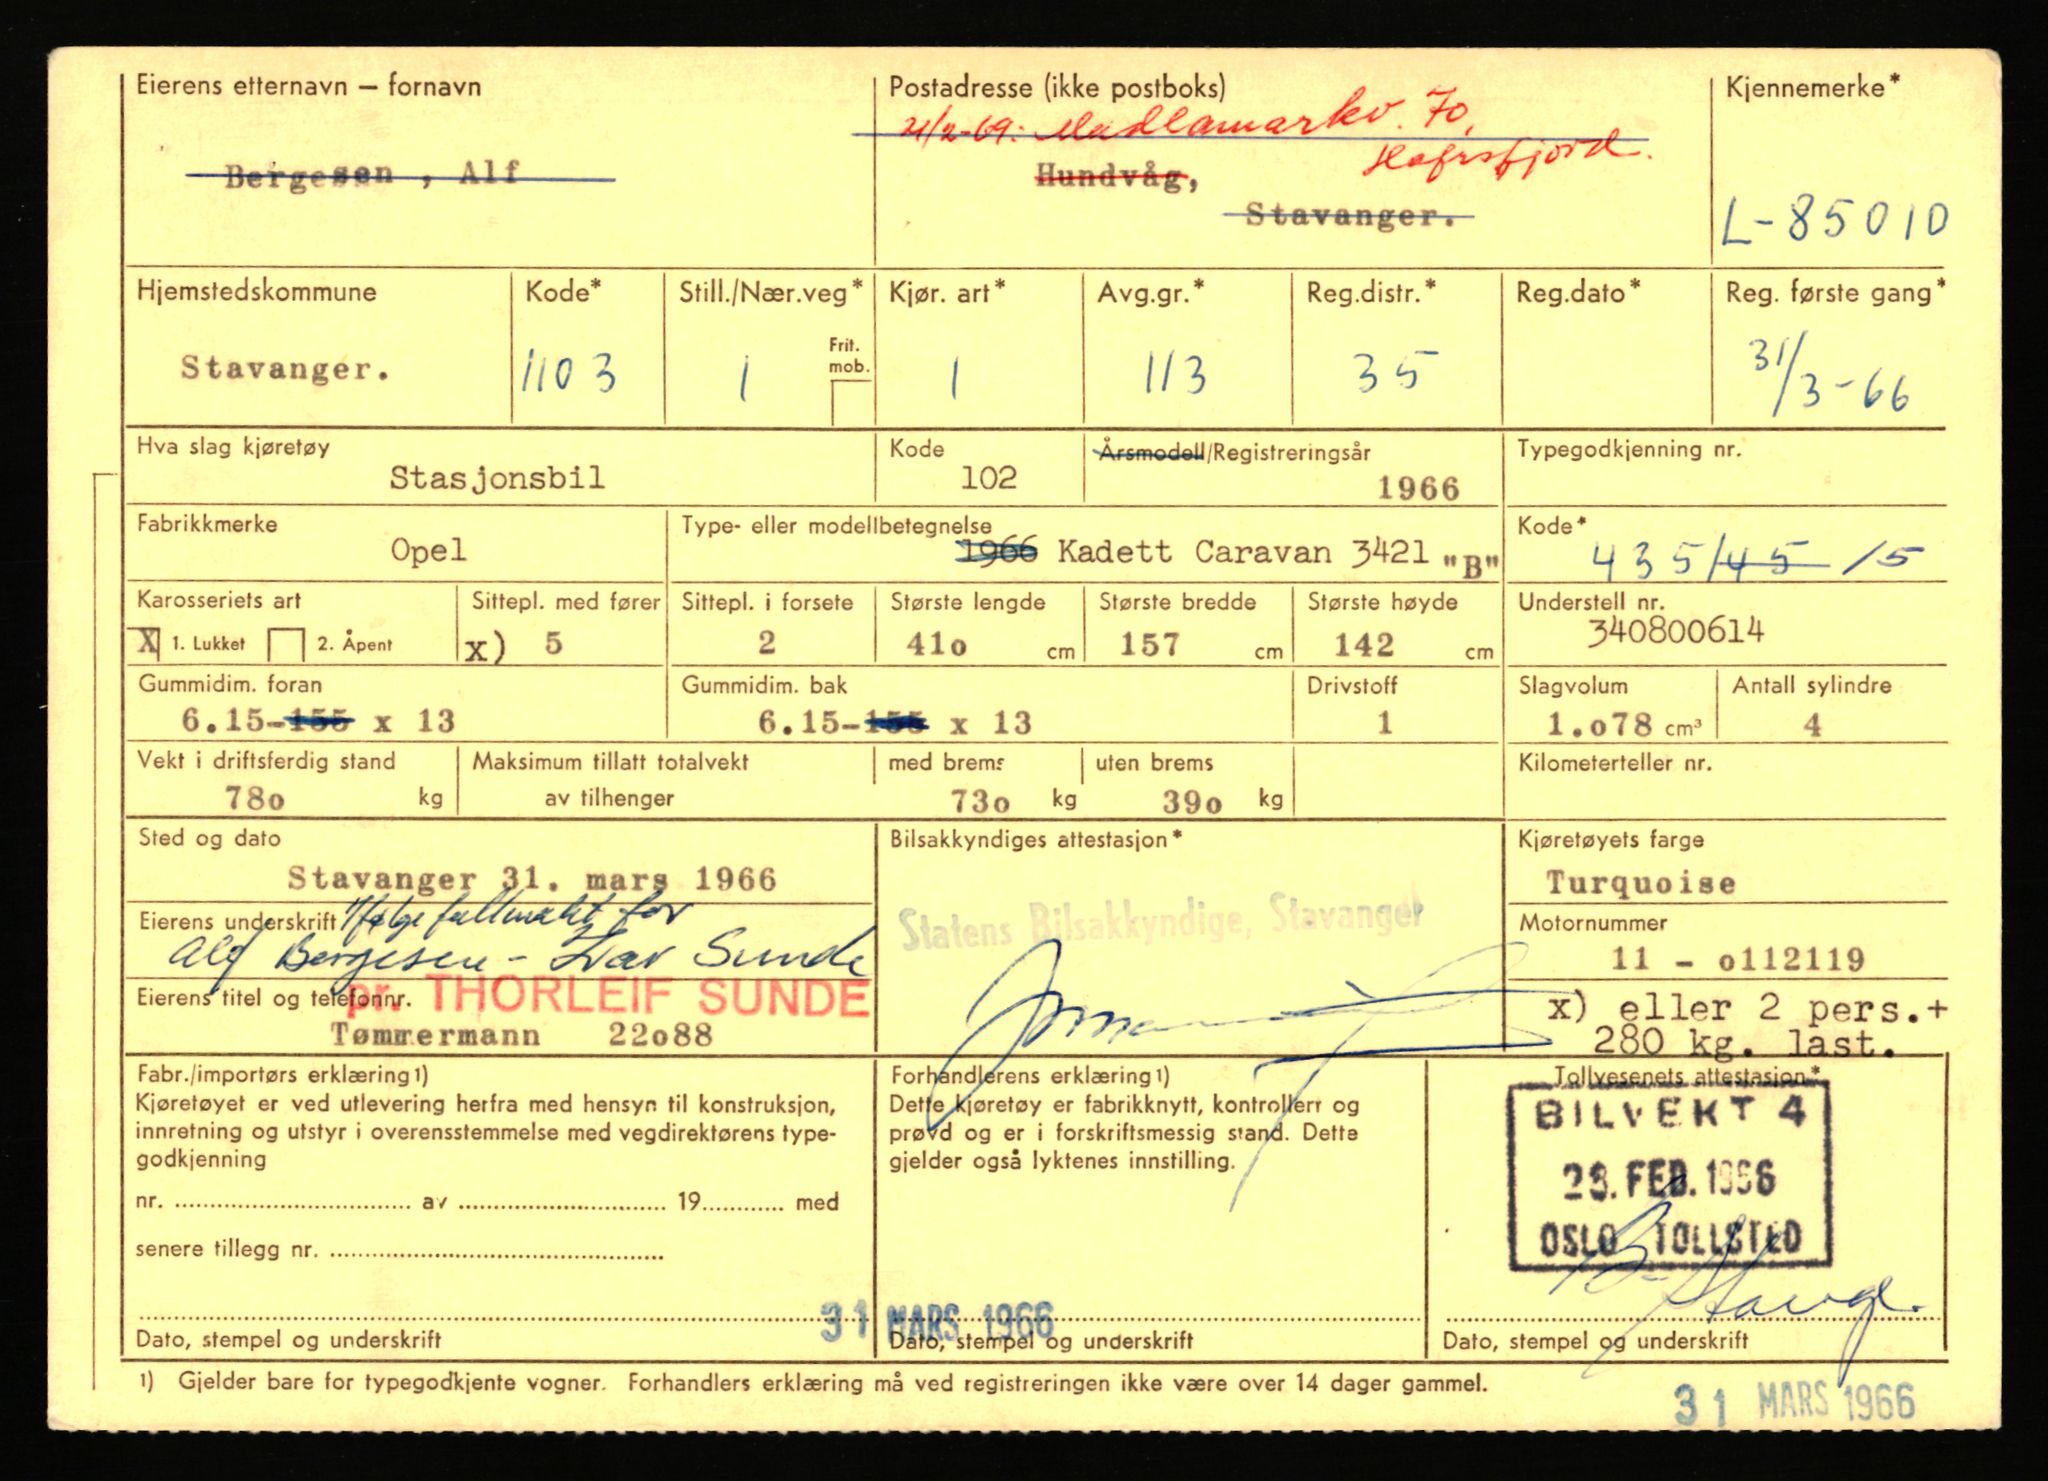 Eierens etternavn – fornavn
Postadresse (ikke postboks)
Kjennemerke*
21/2-69: Madlamarkv. 70,
Hafrsfjord.
Bergesen, Alf
Hundvåg,
Stavanger.
L-85010
Hjemstedskommune
Kode*
Still./Nær.veg*
Kjør. art*
Avg.gr.*
Reg.distr.*
Reg.dato*
Reg. første gang*
Stavanger.
1103
1
Frit. mob.
1
113
35
31/3-66
Hva slag kjøretøy
Kode
Årsmodell/Registreringsår
Typegodkjenning nr.
Stasjonsbil
102
1966
Fabrikkmerke
Type- eller modellbetegnelse
Kode*
Opel
1966 Kadett Caravan 3421 "B"
435/45 /5
Karosseriets art
Sittepl. med fører
Sittepl. i forsete
Største lengde
Største bredde
Største høyde
Understell nr.
X 1. Lukket 2. Åpent
x) 5
2
41o cm
157 cm
142 cm
340800614
Gummidim. foran
Gummidim. bak
Drivstoff
Slagvolum
Antall sylindre
6.15-155 x 13
6.15-155 x 13
1
1.o78 cm³
4
Vekt i driftsferdig stand
Maksimum tillatt totalvekt
med brems
uten brems
Kilometerteller nr.
78o kg
av tilhenger
73o kg
39o kg
Sted og dato
Bilsakkyndiges attestasjon*
Kjøretøyets farge
Stavanger 31. mars 1966
Turquoise
Eierens underskrift Ifølge fullmakt for
Statens Bilsakkyndige, Stavanger
Motornummer
Alf Bergesen – Ivar Sunde
11 - o112119
Eierens titel og telefonnr.
pr. THORLEIF SUNDE
x) eller 2 pers.+
Tømmermann 22o88
280 kg. last.
Fabr./importørs erklæring1)
Kjøretøyet er ved utlevering herfra med hensyn til konstruksjon,
innretning og utstyr i overensstemmelse med vegdirektørens type-
godkjenning
nr. av 19 med
senere tillegg nr.
Forhandlerens erklæring1)
Dette kjøretøy er fabrikknytt, kontrollert og
prøvd og er i forskriftsmessig stand. Dette
gjelder også lyktenes innstilling.
Tollvesenets attestasjon*
BILVEKT 4
23. FEB. 1966
OSLO TOLLSTED
31 MARS 1966
Dato, stempel og underskrift
Dato, stempel og underskrift
Dato, stempel og underskrift
1) Gjelder bare for typegodkjente vogner. Forhandlers erklæring må ved registreringen ikke være over 14 dager gammel.
31 MARS 1966